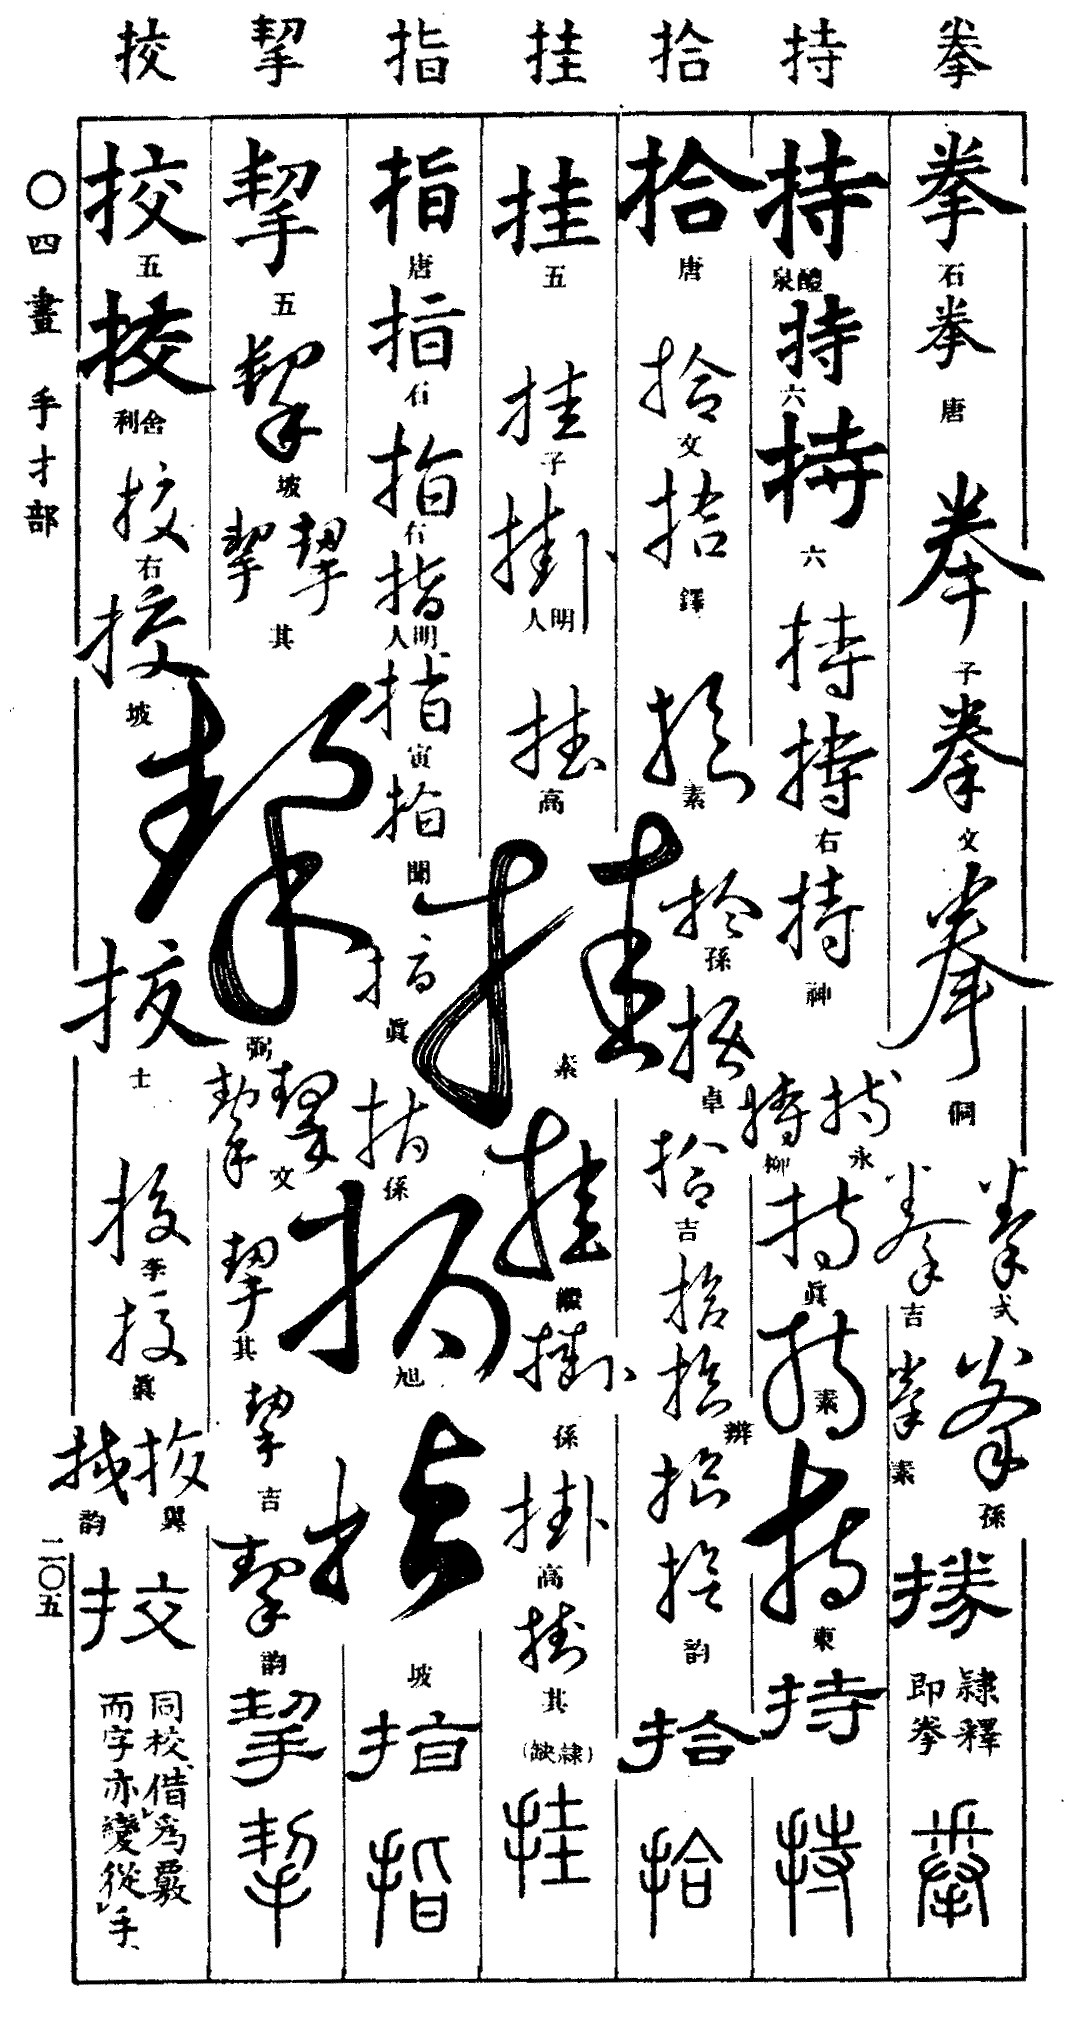 拳 持 拾 挂 指 挈 挍
拳 石 拳 唐 拳 子 拳 文 拳 洞 拳 弌 拳 吉 拳 孫 拳 素 𢮦 隸釋即拳 拳
持 醴泉 持 六 持 六 持 持 右 持 神 持 永 持 柳 持 眞 持 素 持 東 持 持
拾 唐 拾 文 拾 鐸 拾 素 拾 孫 拾 卓 拾 吉 拾 拾 辨 拾 拾 韵 拾 拾
挂 五 挂 子 掛 明人 挂 高 挂 素 挂 掛 孫 掛 高 掛 其 (隸缺) 挂
指 唐 指 石 指 右 指 明人 指 寅 指 閣 指 眞 指 孫 指 旭 指 坡 指 指
挈 五 挈 坡 挈 挈 其 挈 弼 挈 挈 文 挈 其 挈 吉 挈 韵 挈 挈
挍 五 挍 舍利 挍 右 挍 坡 挍 士 挍 李 挍 眞 挍 巽 挍 韵 挍
同校、借爲覈
而字亦變從手、
〇四畫 手扌部
二〇五